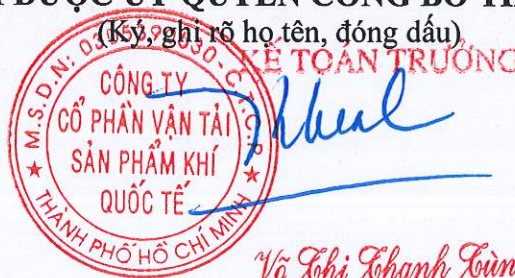 ĐƯỢC ỦY QUYỀN CÔNG BỐ
(Ký, ghi rõ họ tên, đóng dấu)
KẾ TOÁN TRƯỞNG
M.S.D.N: C.T.C.P
CÔNG TY
CỔ PHẦN VẬN TẢI
SẢN PHẨM KHÍ
QUỐC TẾ
THÀNH PHỐ HỒ CHÍ MINH
Võ Thị Thanh